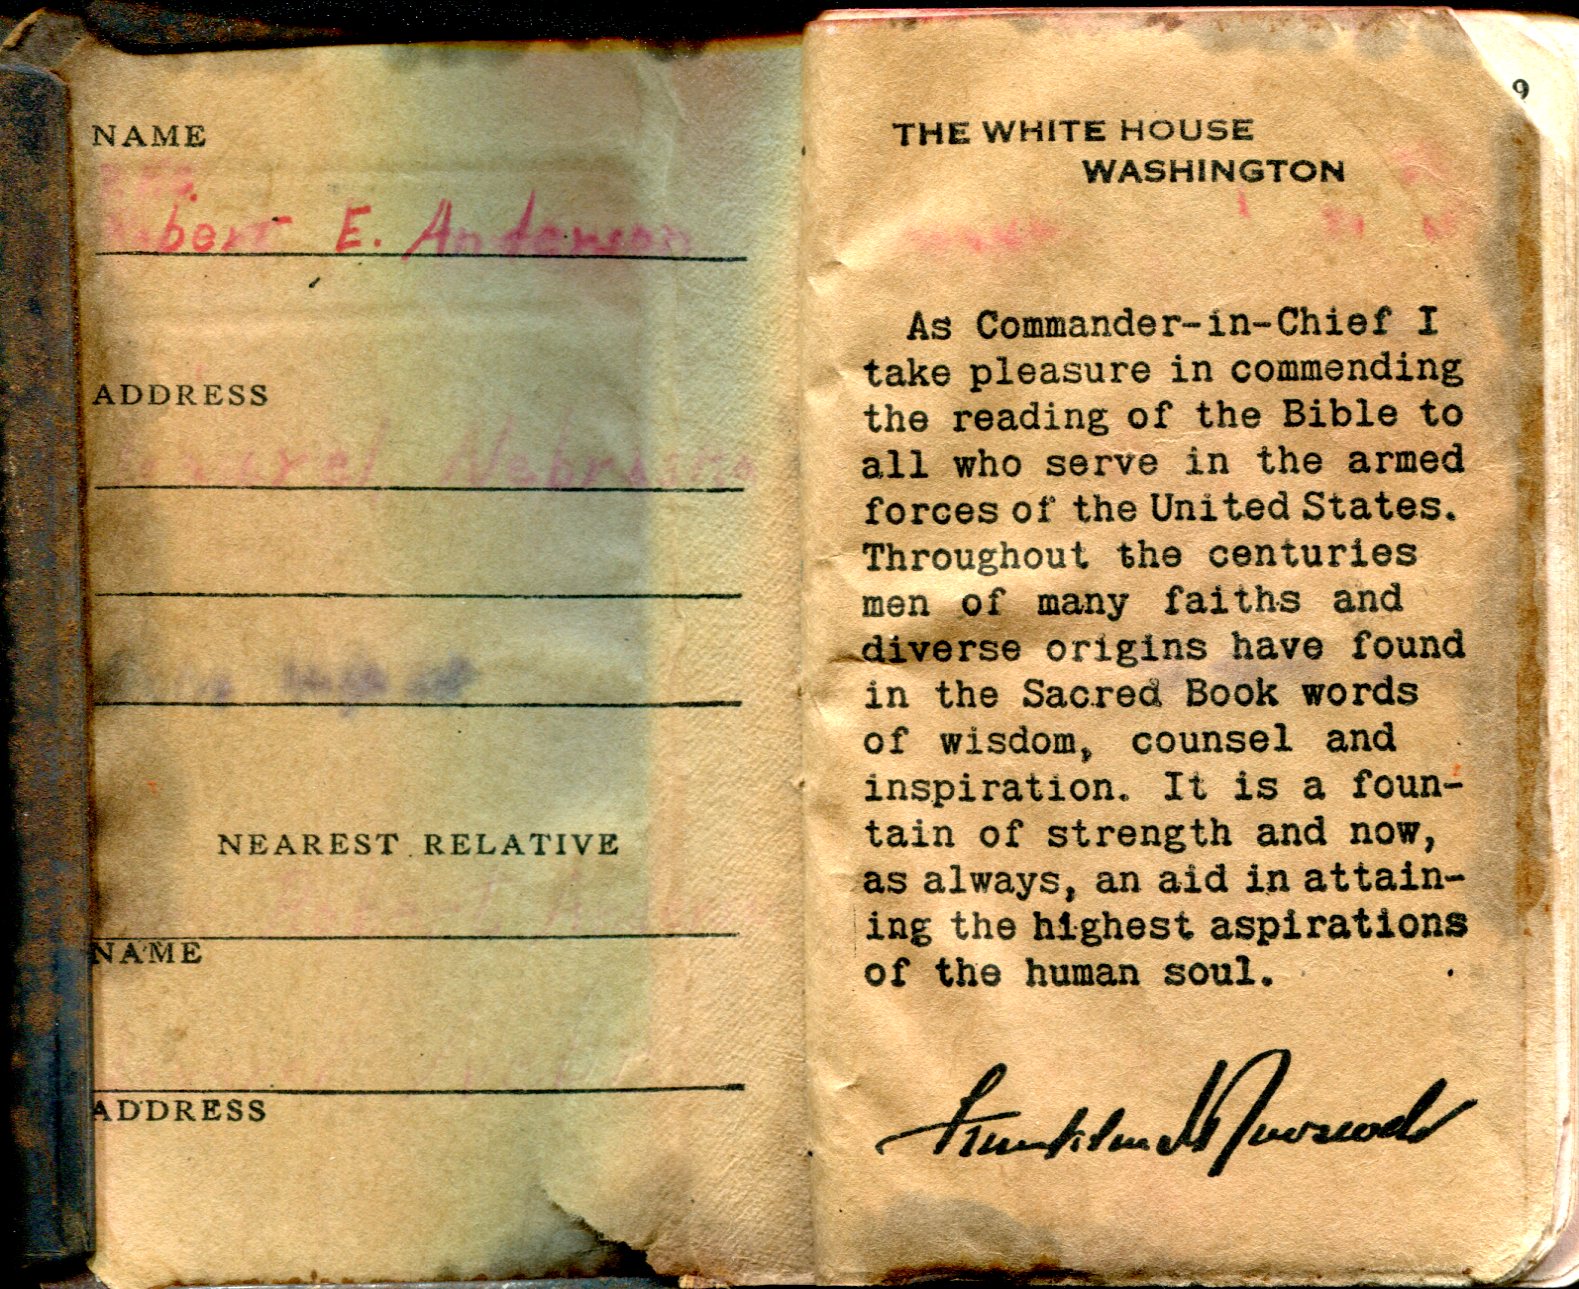 NAME
E. Anderson
ADDRESS
Laurel Nebraska
NEAREST RELATIVE
Robert Anderson
NAME
ADDRESS
9
THE WHITE HOUSE
WASHINGTON
As Commander-in-Chief I
take pleasure in commending
the reading of the Bible to
all who serve in the armed
forces of the United States.
Throughout the centuries
men of many faiths and
diverse origins have found
in the Sacred Book words
of wisdom, counsel and
inspiration. It is a foun-
tain of strength and now,
as always, an aid in attain-
ing the highest aspirations
of the human soul.
Franklin D Roosevelt